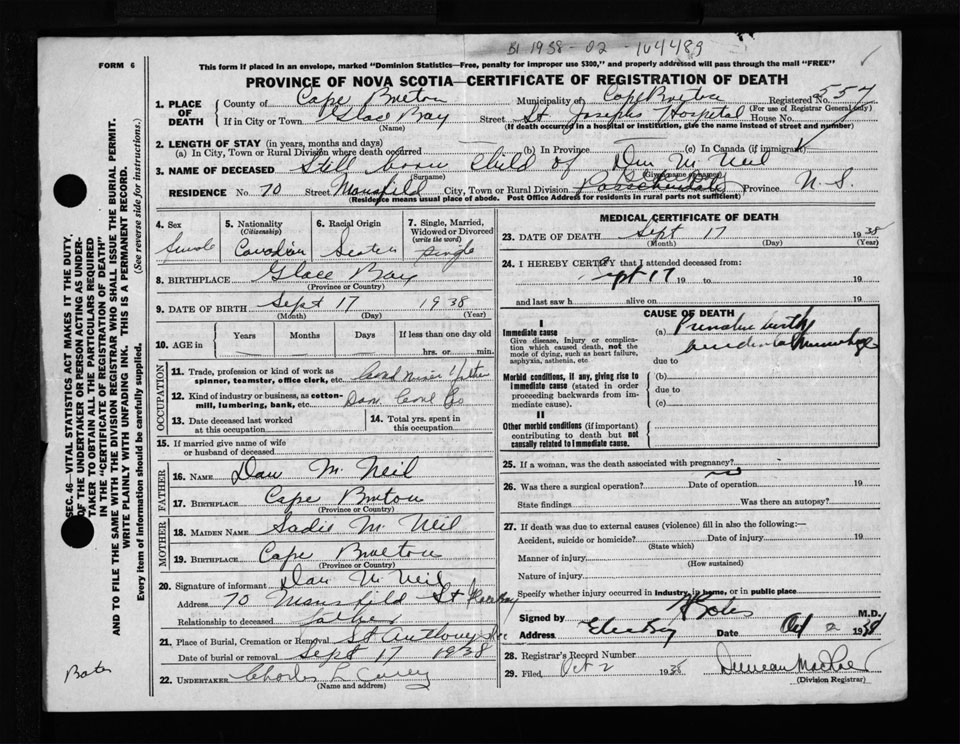 1938-02-164489
FORM 6
This form if placed in an envelope, marked "Dominion Statistics—Free, penalty for improper use $300," and properly addressed will pass through the mail "FREE"
PROVINCE OF NOVA SCOTIA—CERTIFICATE OF REGISTRATION OF DEATH
1. PLACE OF DEATH
County of Cape Breton Municipality of Cape Breton Registered No. 557
(For use of Registrar General only)
If in City or Town Glace Bay Street St Josephs Hospital House No.
(Name) (If death occurred in a hospital or institution, give the name instead of street and number)
2. LENGTH OF STAY (in years, months and days)
(a) In City, Town or Rural Division where death occurred (b) In Province (c) In Canada (if immigrant)
3. NAME OF DECEASED Still born child of Dan McNeil
(Surname)
RESIDENCE No. 70 Street Mansfield City, Town or Rural Division Province N-S.
(Residence means usual place of abode. Post Office Address for residents in rural parts not sufficient)
4. Sex
5. Nationality (Citizenship) Canadian
6. Racial Origin
7. Single, Married, Widowed or Divorced (write the word) Single
8. BIRTHPLACE Glace Bay
(Province or Country)
9. DATE OF BIRTH Sept 17 1938
(Month) (Day) (Year)
10. AGE in Years Months Days If less than one day old
hrs. or min.
OCCUPATION
11. Trade, profession or kind of work as spinner, teamster, office clerk, etc.
12. Kind of industry or business, as cotton-mill, lumbering, bank, etc. Dom. Coal Co
13. Date deceased last worked at this occupation
14. Total yrs. spent in this occupation
15. If married give name of wife or husband of deceased
FATHER
16. NAME Dan McNeil
17. BIRTHPLACE Cape Breton
(Province or Country)
MOTHER
18. MAIDEN NAME Sadie McNeil
19. BIRTHPLACE Cape Breton
(Province or Country)
20. Signature of informant Dan McNeil
Address 70 Mansfield St Glace Bay
Relationship to deceased father
21. Place of Burial, Cremation or Removal St Anthony
Date of burial or removal Sept 17 1938
22. UNDERTAKER Charles L Curry
(Name and address)
MEDICAL CERTIFICATE OF DEATH
23. DATE OF DEATH Sept 17 1938
(Month) (Day) (Year)
24. I HEREBY CERTIFY that I attended deceased from:
Sept 17 19 to 19
and last saw h alive on 19
CAUSE OF DEATH
I
Immediate cause
Give disease, injury or complication which caused death, not the mode of dying, such as heart failure, asphyxia, asthenia, etc.
(a) Premature birth
due to
Morbid conditions, if any, giving rise to immediate cause (stated in order proceeding backwards from immediate cause).
(b)
due to
(c)
II
Other morbid conditions (if important) contributing to death but not causally related to immediate cause.
25. If a woman, was the death associated with pregnancy?
26. Was there a surgical operation? no Date of operation 19
State findings Was there an autopsy?
27. If death was due to external causes (violence) fill in also the following:—
Accident, suicide or homicide? Date of injury 19
(State which)
Manner of injury
(How sustained)
Nature of injury
Specify whether injury occurred in industry, in home, or in public place
Signed by M.D.
Address Date Oct 2 1938
28. Registrar's Record Number
29. Filed Oct 2 1938
(Division Registrar)
SEC. 46—VITAL STATISTICS ACT MAKES IT THE DUTY.
OF THE UNDERTAKER OR PERSON ACTING AS UNDERTAKER TO OBTAIN ALL THE PARTICULARS REQUIRED
IN THE "CERTIFICATE OF REGISTRATION OF DEATH"
AND TO FILE THE SAME WITH THE DIVISION REGISTRAR WHO SHALL ISSUE THE BURIAL PERMIT.
WRITE PLAINLY WITH UNFADING INK. THIS IS A PERMANENT RECORD.
Every item of information should be carefully supplied. (See reverse side for instructions.)